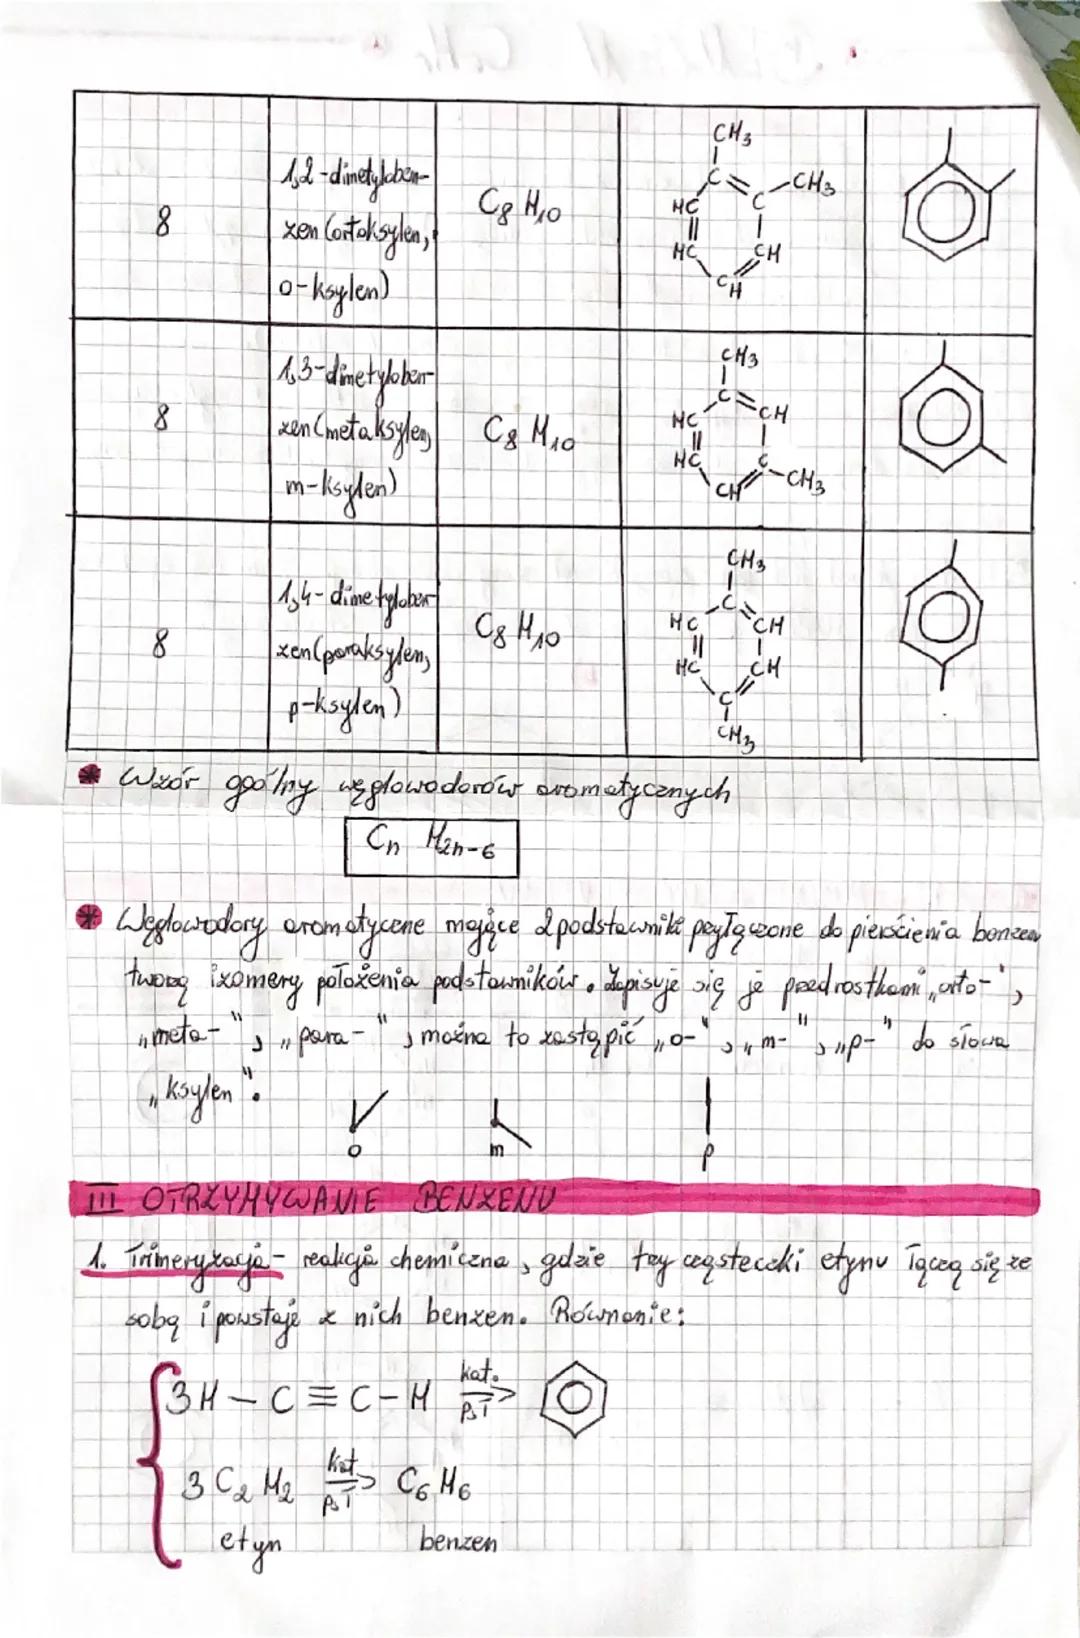 8
1,2-dimetyloben-
zen (ortoksylen,
o-ksylen)
C8 H10
CH3
C
C
CH3
HC
HC
CH
CH
8
1,3-dimetyloben-
zen (metaksylen,
m-ksylen)
C8 H10
CH3
C
CH
HC
HC
C
CH3
CH
8
1,4-dimetyloben
zen (paraksylen,
p-ksylen)
C8 H10
CH3
C
HC
CH
HC
CH
C
CH3
* Wzór ogólny węglowodorów aromatycznych
Cn H2n-6
* Węglowodory aromatyczne mające 2 podstawniki przyłączone do pierścienia benzenu
tworzą izomery położenia podstawników. Zapisuje się je przedrostkami „orto-",
„meta-", „para-", można to zastąpić „o-", „m-", „p-" do słowa
„ksylen".
o
m
p
III OTRZYMYWANIE BENZENU
1. Trimeryzacja - reakcja chemiczna, gdzie trzy cząsteczki etynu łączą się ze
sobą i powstaje z nich benzen. Równanie:
3H-C≡C-H kat. p,T
3 C2 H2 kat. p,T C6 H6
etyn benzen